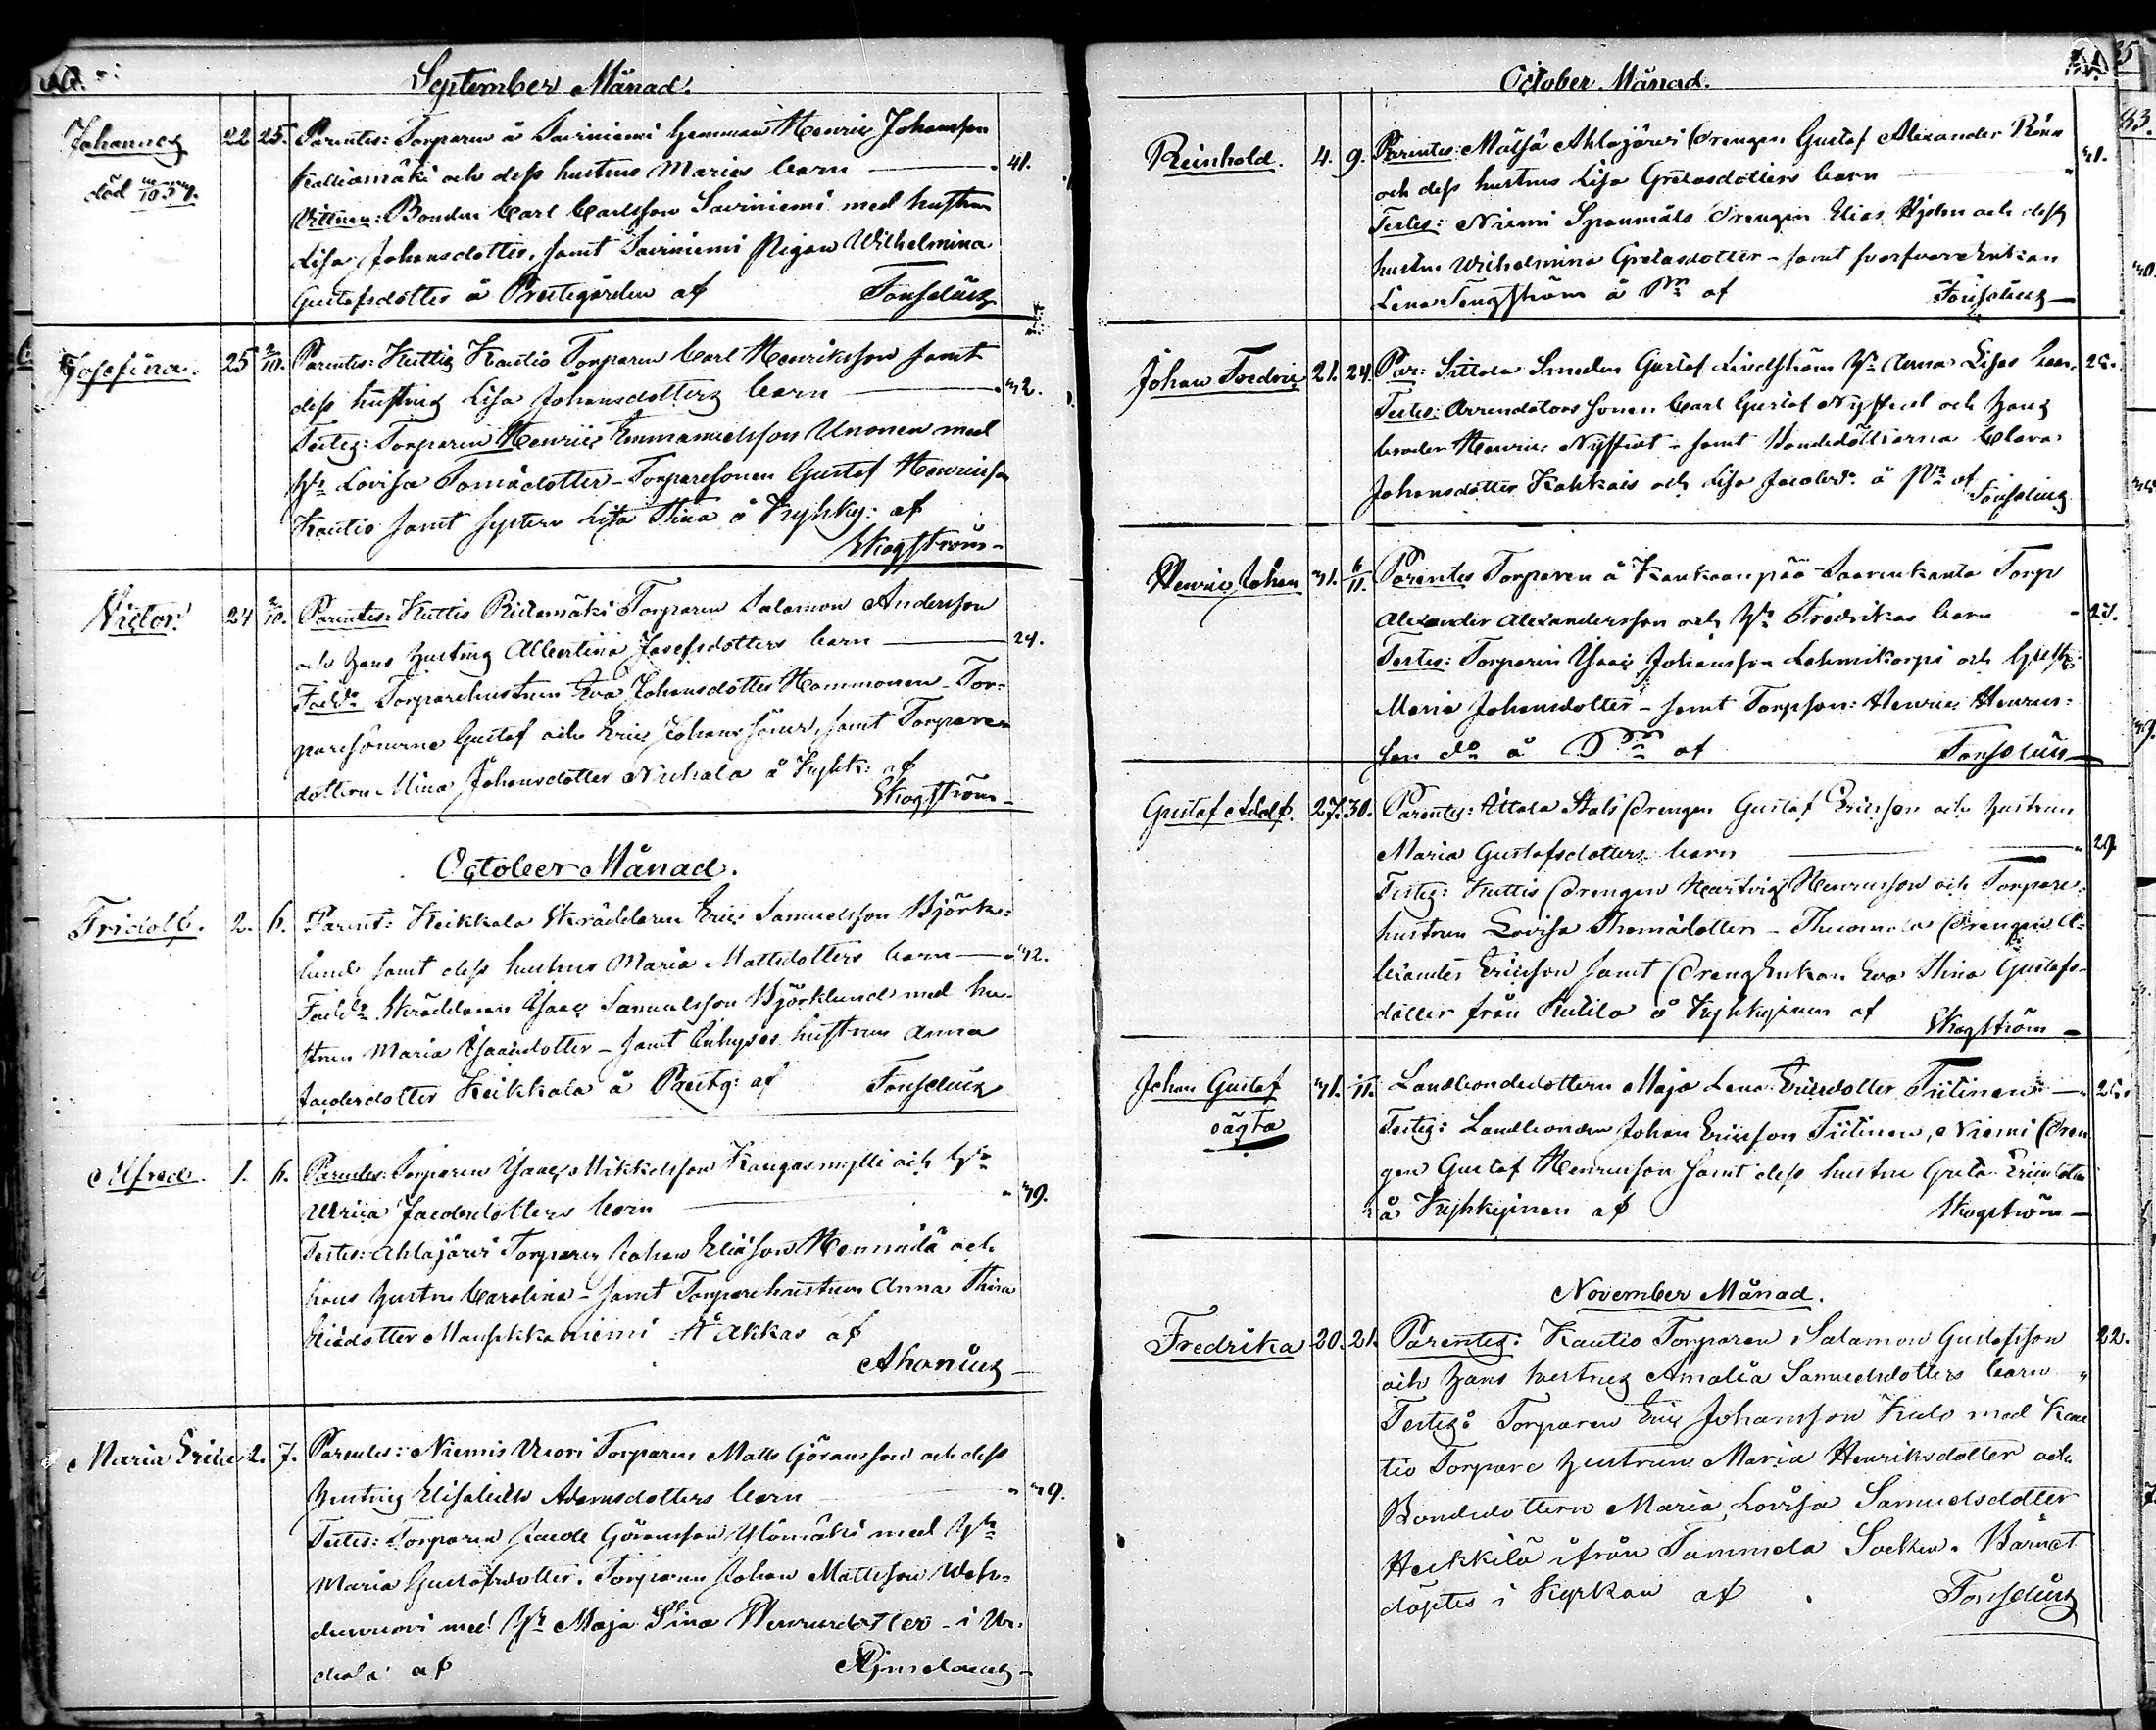 September Månad.
Johannes 22 25. Parentes: Torparen å Saviniemi hemman Henric Johansson
död Kalliomäki och dess hustrus Marias barn 41.
Vittnen: Bonden Carl Carlsson Saviniemi med hustrun
Lisa Johansdotter, samt Saviniemi Pigan Wilhelmina
Gustafsdotter å Prestegården af Fonselius
Josefina. 25 2/10. Parentes: Kuttis Kautio Torparen Carl Henriksson samt
dess hustrus Lisa Johansdotters barn 32.
Testes: Torparen Henric Emmanuelsson Unonen med
Hu Lovisa Tomädotter - Torparesonen Gustaf Henricsson
Kautio samt systern Lisa Stina å Kyhky: af
Skogström -
Victor. 24 2/10. Parentes: Kuttis Ridamäki Torparen Salomon Andersson
och hans hustrus Albertina Josefsdotters barn 24.
Fadd: Torparehustrun Eva Johansdotter Hammonen - Tor=
paresönerne Gustaf och Eric Johans söner, samt Torpare
dottern Mina Johansdotter Nuhala å Kyhk: af
Skogström -
October Månad.
Fridolf. 2. 6. Parent: Keikkala Skräddaren Eric Samuelsson Björk=
lund samt dess hustrus Maria Mattsdotters barn 32.
Fadd: Skräddaren Isaac Samuelsson Björklund med hu-
strun Maria Isaacsdotter - samt Inhyses hustrun Anna
Jacobsdotter Keikkala å Prestg: af Fonselius
Alfred. 1. 6. Parentes: Torparen Isaac Mikkelsson Kangasmylli och Hu
Ulrica Jacobsdotters barn 39.
Testes: Ahlajärvi Torparen Johan Eliasson Hennilä och
hans hustru Carolina - samt Torparehustrun Anna Stina
Eliædotter å Akkas af
Ahonius -
Maria Erica 2. 7. Parentes: Niemis Vuori Torparen Matts Göransson och dess
hustrus Elisabeth Adamsdotters barn 39.
Testes: Torparen Jacob Göransson Ylömäki med Hu
Maria Gustafsdotter. Torparen Johan Mattsson
med Hu Maja Stina Henricsdotter - i Ur-
diala af
October Månad.
Reinhold. 4. 9. Parentes: Matsä Ahlajärvi Drengen Gustaf Alexander
och dess hustrus Lisa Gretasdotters barn 31.
Testes: Niemi Sponmäls Drengen Elias Hjelm och dess
hustru Wilhelmina Gretasdotter - samt Enkan
Lena Tengström å af Fonselius -
Johan Fredric 21. 24. Par: Sittola Smeden Gustaf Lindström Hu Anna Lisas barn. 25.
Testes: Arrendators sonen Carl Gustaf Nyqvist och hans
broder Henric Nyqvist - samt Bondedöttrarna Clara
Johansdotter Kakkais och Lisa Jacobsd: å af Fonselius
Henric Johan 31. 6/11. Parentes Torparen å Kankaanpää Saarenkanta Torp
Alexander Alexandersson och Hu Fredrikas barn - 27.
Testes: Torparen Isaac Johansson Lehmikorpi och
Maria Johansdotter - samt Torpson: Henric Henrics=
son do å af Fonselius -
Gustaf Adolf. 27. 30. Parentes: Attala Stals Drengen Gustaf Ericsson och hustrun
Maria Gustafsdotters barn 29
Testes: Kuttis Drengen Hartvig Henricsson och Torpare
hustrun Lovisa Thomädotter - Drengen
Ericsson samt Dreng Enkan Eva Stina Gustafs-
dotter från Kutila å Kyhkyinen af Skogström -
Johan Gustaf 31. Landbondedottern Maja Lena Ericsdotter Tiitinen - 25.
oägta Testes: Landbonden Johan Ericsson Tiitinen, Niemi Dren
gen Gustaf Henricsson samt dess hustru Greta Ericsdotter
å Kyhkyinen af Skogström -
November Månad.
Fredrika 20. 21. Parentes: Kautio Torparen Salomon Gustafsson 22.
och hans hustrus Amalia Samuelsdotters barn
Testes: Torparen Eric Johansson Kulo med Kau
tio Torpare hustrun Maria Henriksdotter och
Bondedottern Maria Lovisa Samuelsdotter
Heikkilä ifrån Tammela Socken. Barnet
döptes i Kyrkan af Fonselius